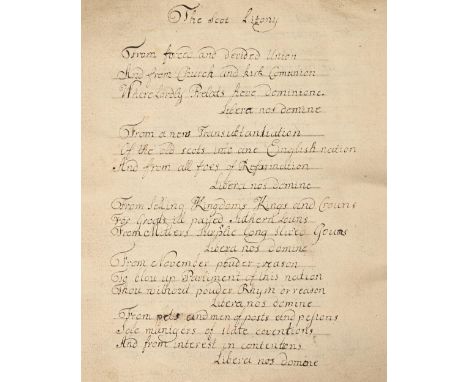 The Scot Litony
From forced and decided Union
And from Church and kirk Comunion
Where Lordly Prelats have dominione
Libera nos domine
From a new Transubtantiation
Of the old scots into ane English nation
And from all foes of Reformation
Libera nos domine
From selling Kingdoms Kings and Crouns
For Groats ill payed Southern Louns
From Miters Surplic Long slived Gouns
Libera nos domine
From November pouder reason
To blow up Parliment of this nation
Thou without pouder Rhym or reason
Libera nos domine
From pets and men of posts and pesions
Sole manigers of state coventions
And from interest in contentions
Libera nos domine